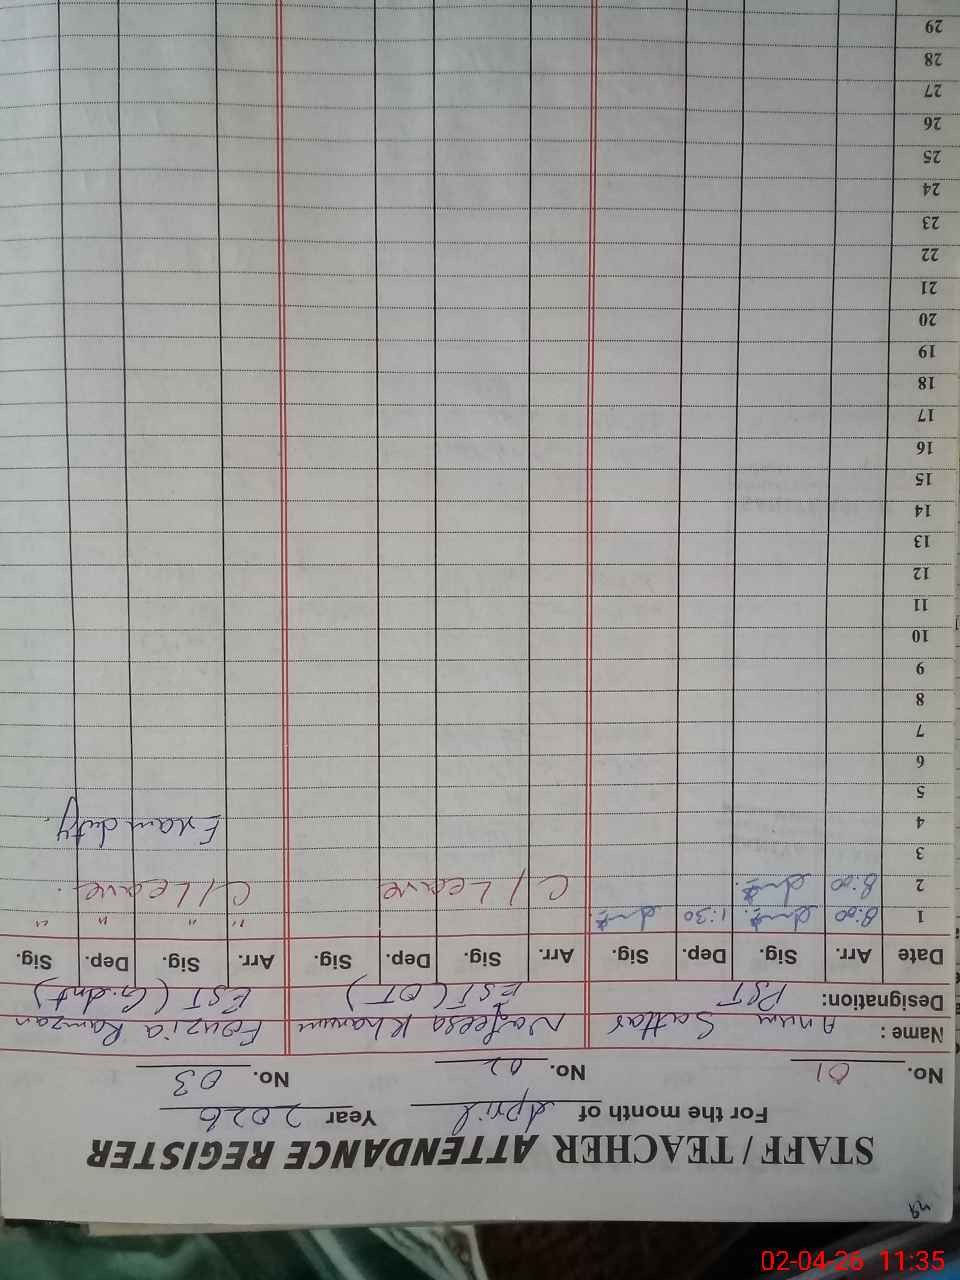 49
STAFF / TEACHER ATTENDANCE REGISTER
For the month of April Year 2026
No. 01 No. 02 No. 03
Name : Anum Sattar Nafeesa Khanum Fouzia Ramzan
Designation: PST EST (OT) EST (G.dnt)
Date Arr. Sig. Dep. Sig. Arr. Sig. Dep. Sig. Arr. Sig. Dep. Sig.
1 8:00 1:30 " " " "
2 8:00 C/Leave C/Leave.
3
4 Exam duty.
5
6
7
8
9
10
11
12
13
14
15
16
17
18
19
20
21
22
23
24
25
26
27
28
29
02-04-26 11:35